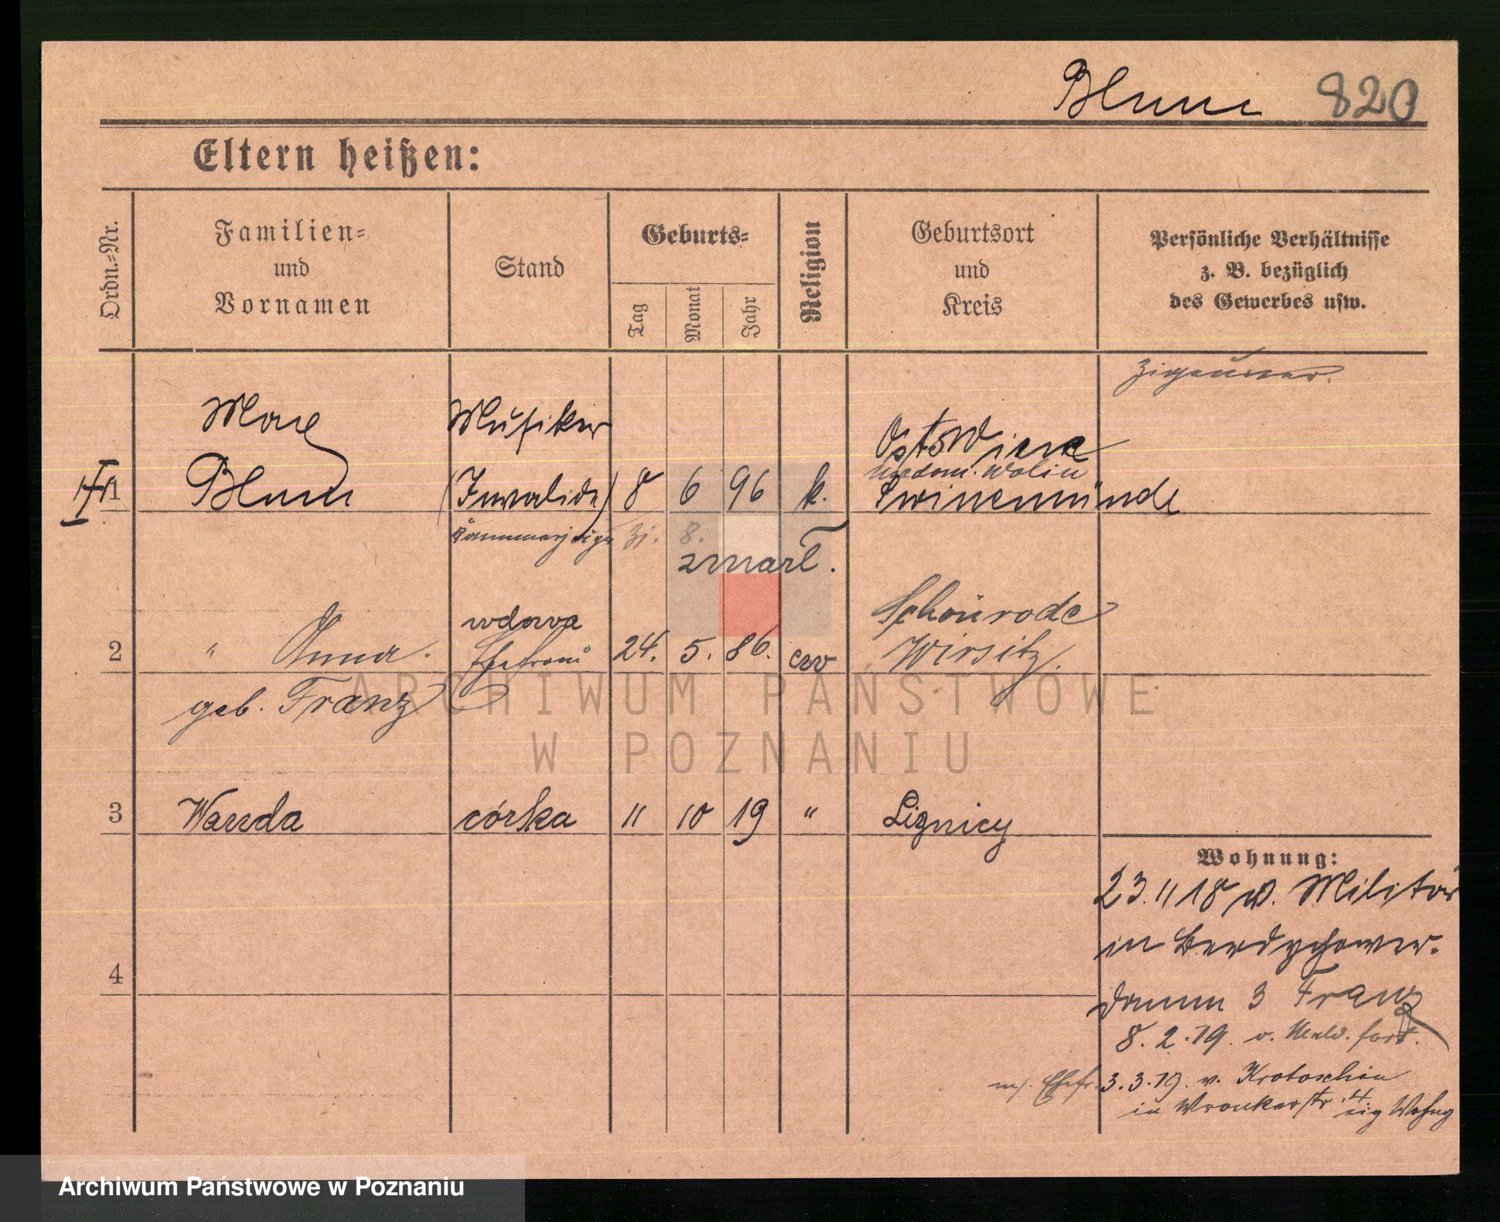 Blum 820
Eltern heißen:
Ordn.=Nr.
Familien=
und
Vornamen
Stand
Geburts=
Tag
Monat
Jahr
Religion
Geburtsort
und
Kreis
Persönliche Verhältnisse
z. B. bezüglich
des Gewerbes usw.
Zigeuner.
Max Musiker
1 Blum (Invalide) 8 6 96 k. Swinemünde
Usedom. Wolin
zmarł.
wdowa Schönrode
2 " Anna. Ehefrau 24. 5. 86. ew Wirsitz.
geb. Franz
3 Wanda córka 11 10 19 " Lignicy
4
Wohnung:
23.11 18 v. Militär
in
Damm 3 Franz
8. 2. 19. v. fort.
m/. Ehefr. 3. 3. 19. v. Krotoschin
in Wronkerstr. 4 eig Wohng
ARCHIWUM PAŃSTWOWE
W POZNANIU
Archiwum Państwowe w Poznaniu